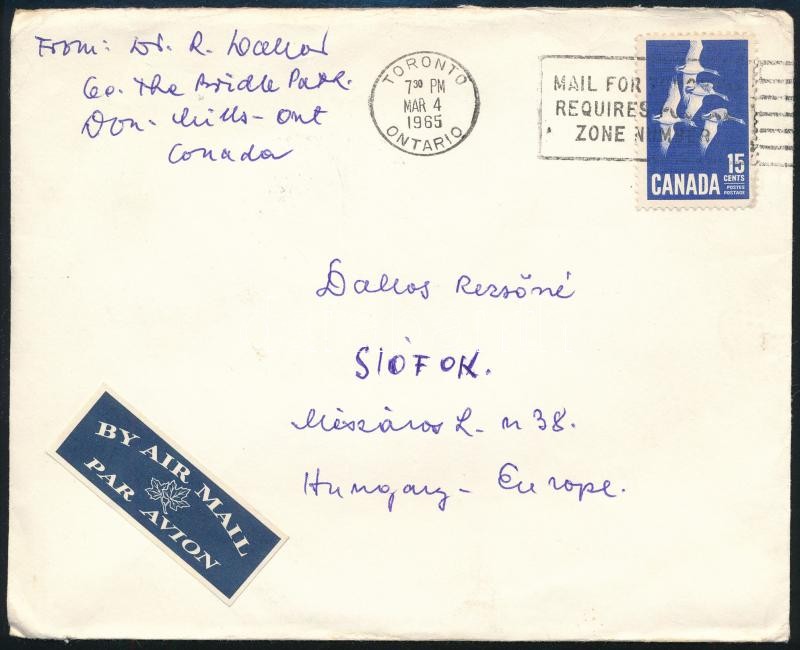 From: Dr. R. Dallos
60. The Bridle Path.
Don. Mills - Ont
Canada
TORONTO
7 30 PM
MAR 4
1965
ONTARIO
MAIL FOR
REQUIRES
ZONE NUMBER
15
CENTS
CANADA
POSTES
POSTAGE
Dallos Rezsőné
SIÓFOK.
Mészáros L. u 38.
Hungary - Europe.
BY AIR MAIL
PAR AVION